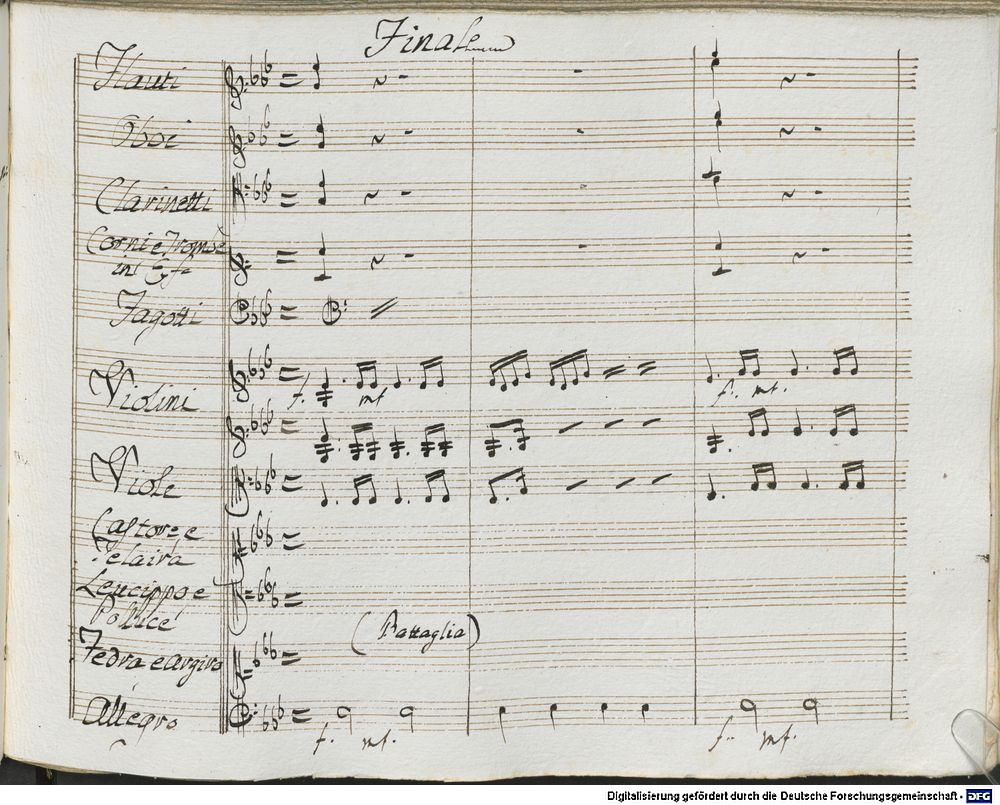 Finale
Flauti
Oboi
Clarinetti
Corni e Trombe
in Efa
Fagotti
Violini
f. mf
f. mf.
Viole
Castore e
Telaira
Leucippo e
Polluce
(Battaglia)
Fedra e Argiro
Allegro
f. mf.
f. mf.
Digitalisierung gefördert durch die Deutsche Forschungsgemeinschaft - DFG